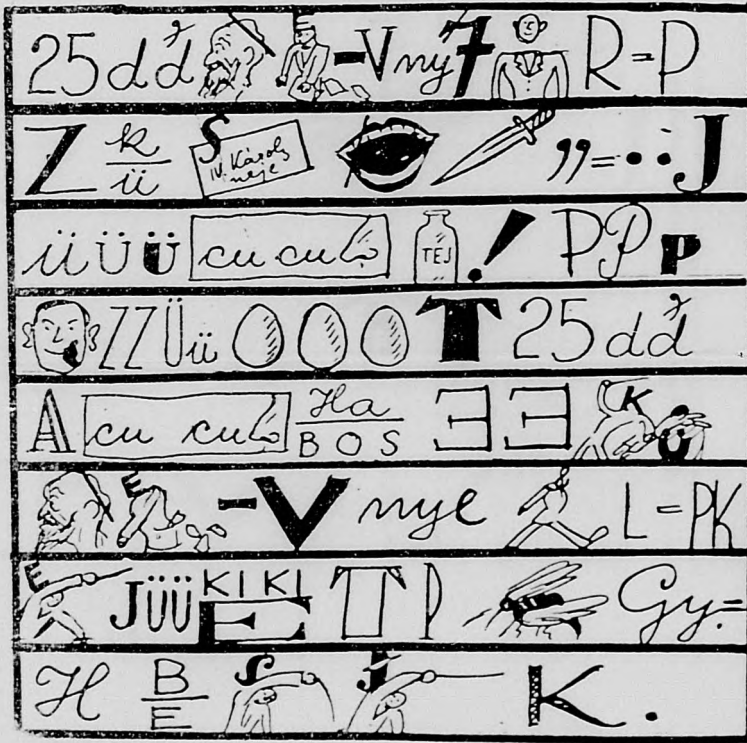 25 d d g -V ny 7 R=P
Z k ü S IV. Károly neje ,,=.. J
ü Ü Ü cu cu TEJ ! P P P
Z Z Ü ü O O O T 25 d d g
A cu cu Ha BOS E E K Ü
E -V nye L=PK
E J Ü Ü KI KI E T P Gy.=
H B E S J K .